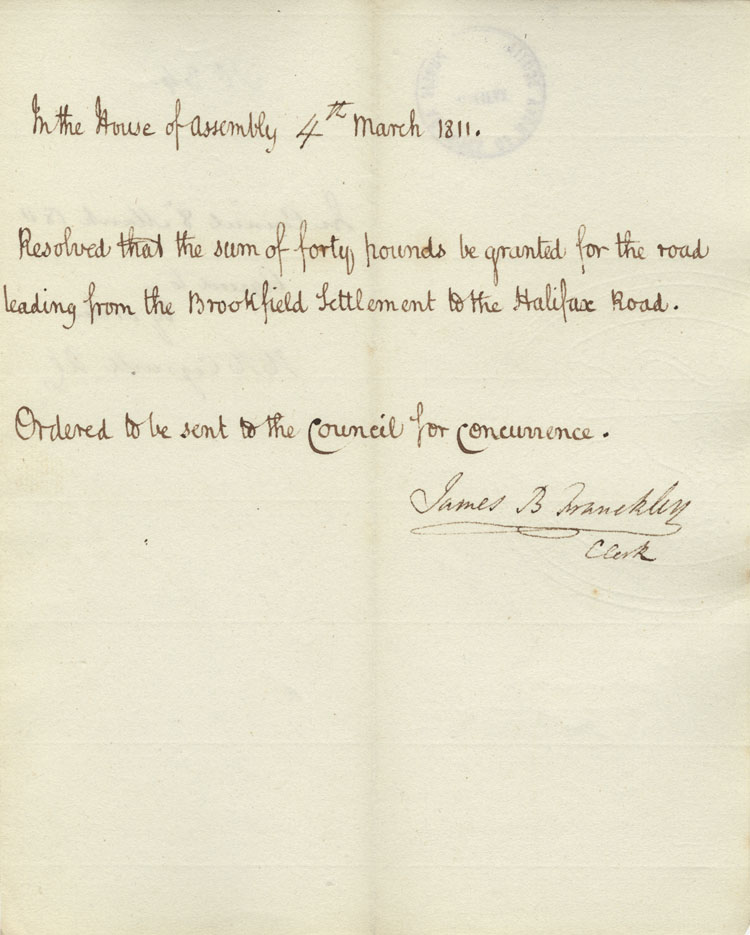 In the House of Assembly 4th March 1811.
Resolved that the sum of forty pounds be granted for the road
leading from the Brookfield Settlement to the Halifax Road.
Ordered to be sent to the Council for concurrence.
James B Franckley
Clerk